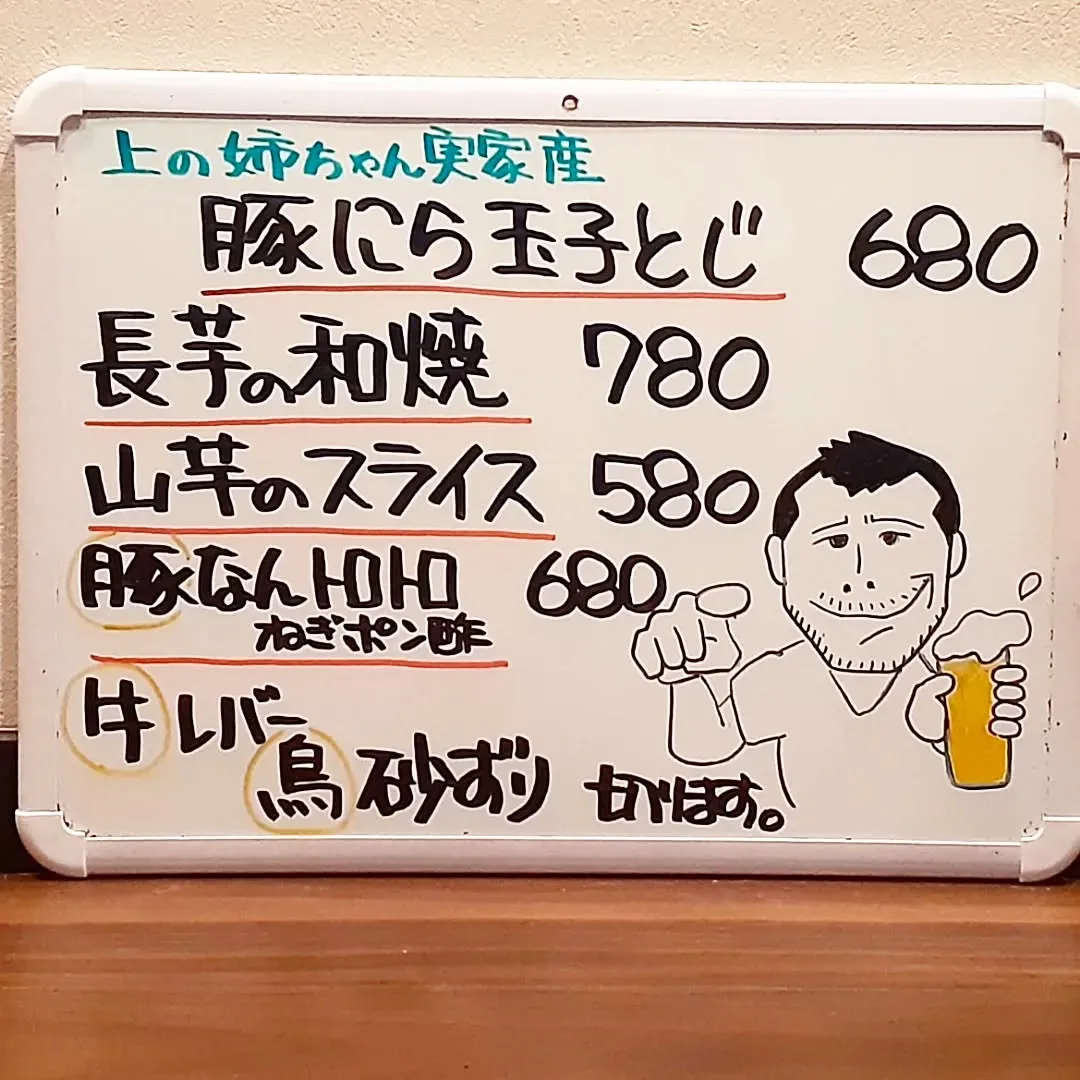 上の姉ちゃん実家産
豚にら玉子とじ 680
長芋の和焼 780
山芋のスライス 580
豚なんトロトロ 680
ねぎポン酢
牛レバー
鳥砂ずり